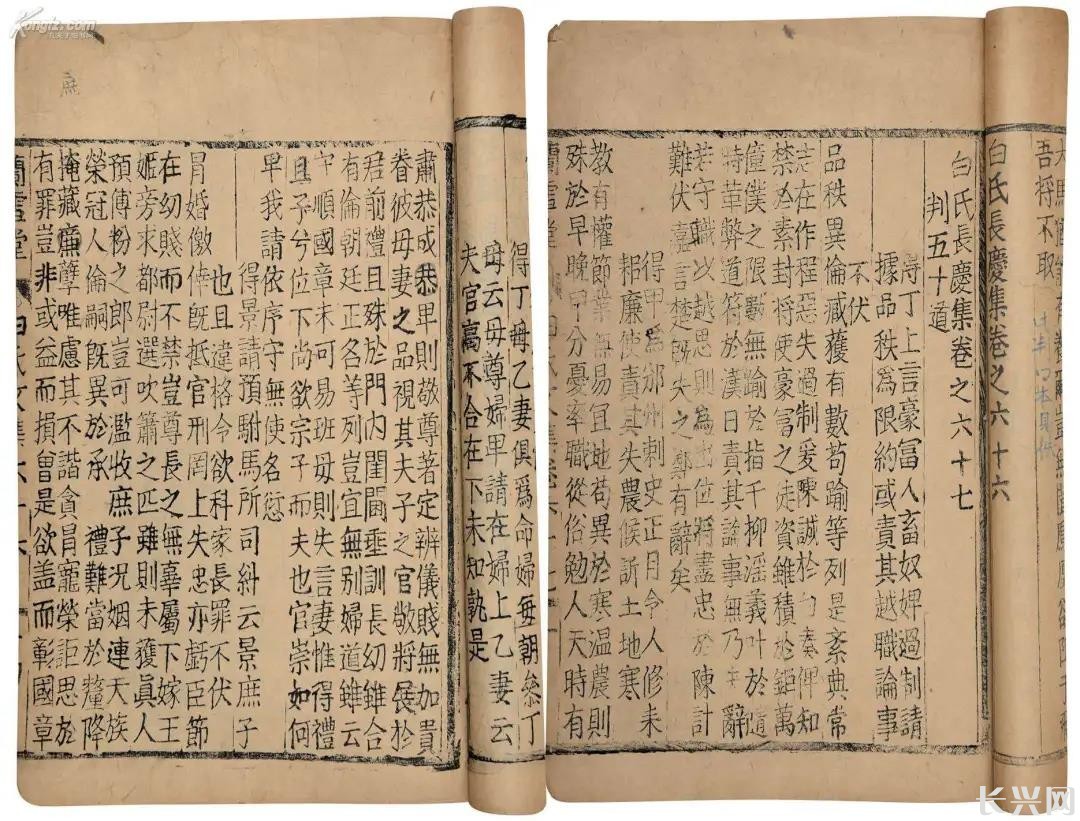 得丁母乙妻俱爲命婦每朝叅丁
母云母尊婦卑請在婦上乙妻云
夫官高不合在下未知孰是
肅恭成恭卑則敬尊著定辨儀賤無加貴
眷彼母妻之品視其夫子之官敬將展於
君前禮且殊於門内閨閫垂訓長幼雖合
有倫朝廷正名等列豈宜無别婦道雖云
守順國章未可易班母則失言妻惟得禮
且子兮位下尚欲宗子而夫也官崇如何
卑我請依序守無使名愆
得景請預駙馬所司糾云景庶子
也且違格令欲科家長罪不伏
冐婚徼倖旣抵官刑罔上失忠亦虧臣節
在幼賤而不禁豈尊長之無辜屬下嫁王
姬旁求都尉選吹簫之匹雖則未獲眞人
預傅粉之郎豈可濫收庶子況姻連天族
榮冠人倫嗣旣異於承禮難當於釐降
掩藏庶孽唯慮其不諧貪冐寵榮詎思於
有罪豈非或益而損曾是欲盖而彰國章
蘭雪堂
白氏文集六十六
庶
吾將不取
白氏長慶集卷之六十六
白氏長慶集卷之六十七
判五十道
得丁上言豪富人畜奴婢過制請
據品秩爲限約或責其越職論事
不伏
品秩異倫臧獲有數苟踰等列是紊典常
在作程惡失過制爰陳誠於
禁於素封將使豪富之徒資雖積於鉅萬
僮僕之限數無踰於指千柳滛義叶於隨
時革弊道符於漢日責其論事無乃辭
守職以越思則爲出位將盡忠於陳計
難伏嘉言楚旣失之鄭有辭矣
得甲爲邠州刺史正月令人修耒
耜廉使責其失農候訴土地寒
教有權節葉無易宜地苟異於寒温農則
殊於早晩甲分憂率職從俗勉人天時有
蘭雪堂
Kongfz.com
长兴网